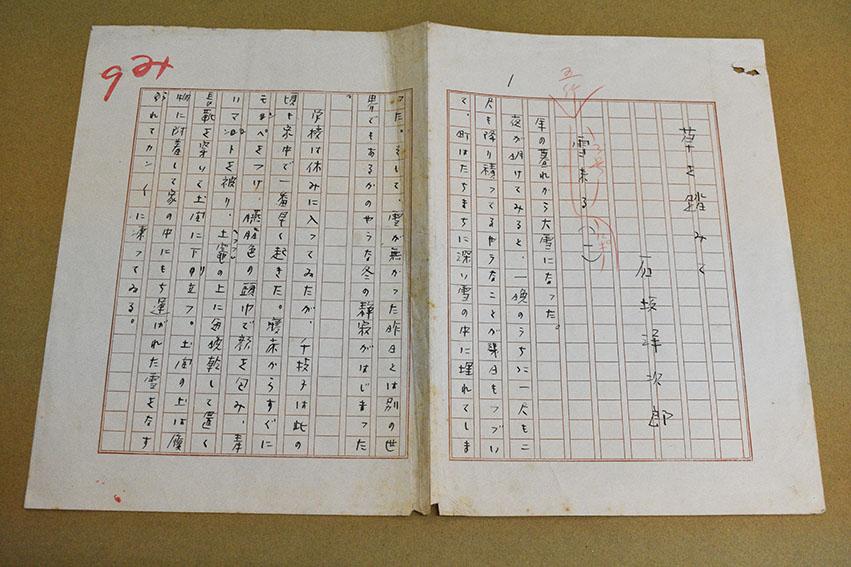 1
五行
草を踏みて
石坂洋次郎
雪来る(一)
年の暮れから大雪になった。
夜が明けてみると、一晩のうちに一尺も二
尺も降り積ってるやうなことが幾日もつゞい
て、町はたちまちに深い雪の中に埋れてしま
った。そして、雪が無かった昨日とは別の世
界でもあるかのやうな冬の静寂がはじまった
。
学校は休みに入ってゐたが、千枝子は此の
頃も家中で一番早く起きた。寝床からすぐに
モンペをつけ、臙脂色の頭巾で顔を包み、
リマントを被り、土竃の上に毎夜乾して置く
長靴を穿いて土間に下り立つ。土間の土は履
物に附着して家の中にもち運ばれた雪をなす
られてカン〱に凍ってゐる。